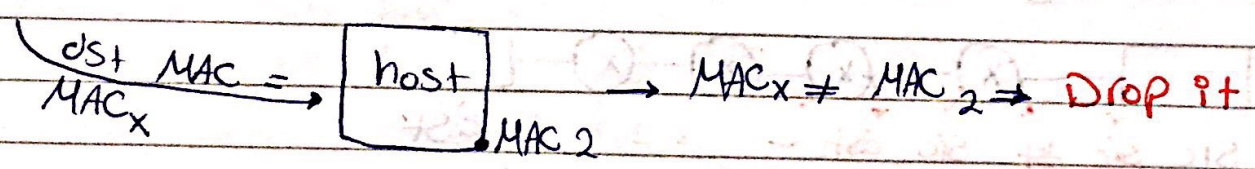 dst MAC =
MACx
host
MAC 2
→ MACx ≠ MAC 2 ⇒ Drop it